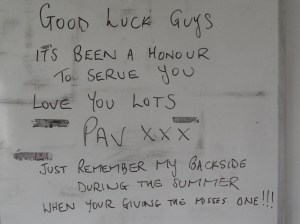 GOOD LUCK GUYS
IT'S BEEN A HONOUR
TO SERVE YOU
LOVE YOU LOTS
PAV XXX
JUST REMEMBER MY BACKSIDE
DURING THE SUMMER
WHEN YOUR GIVING THE MISSES ONE!!!